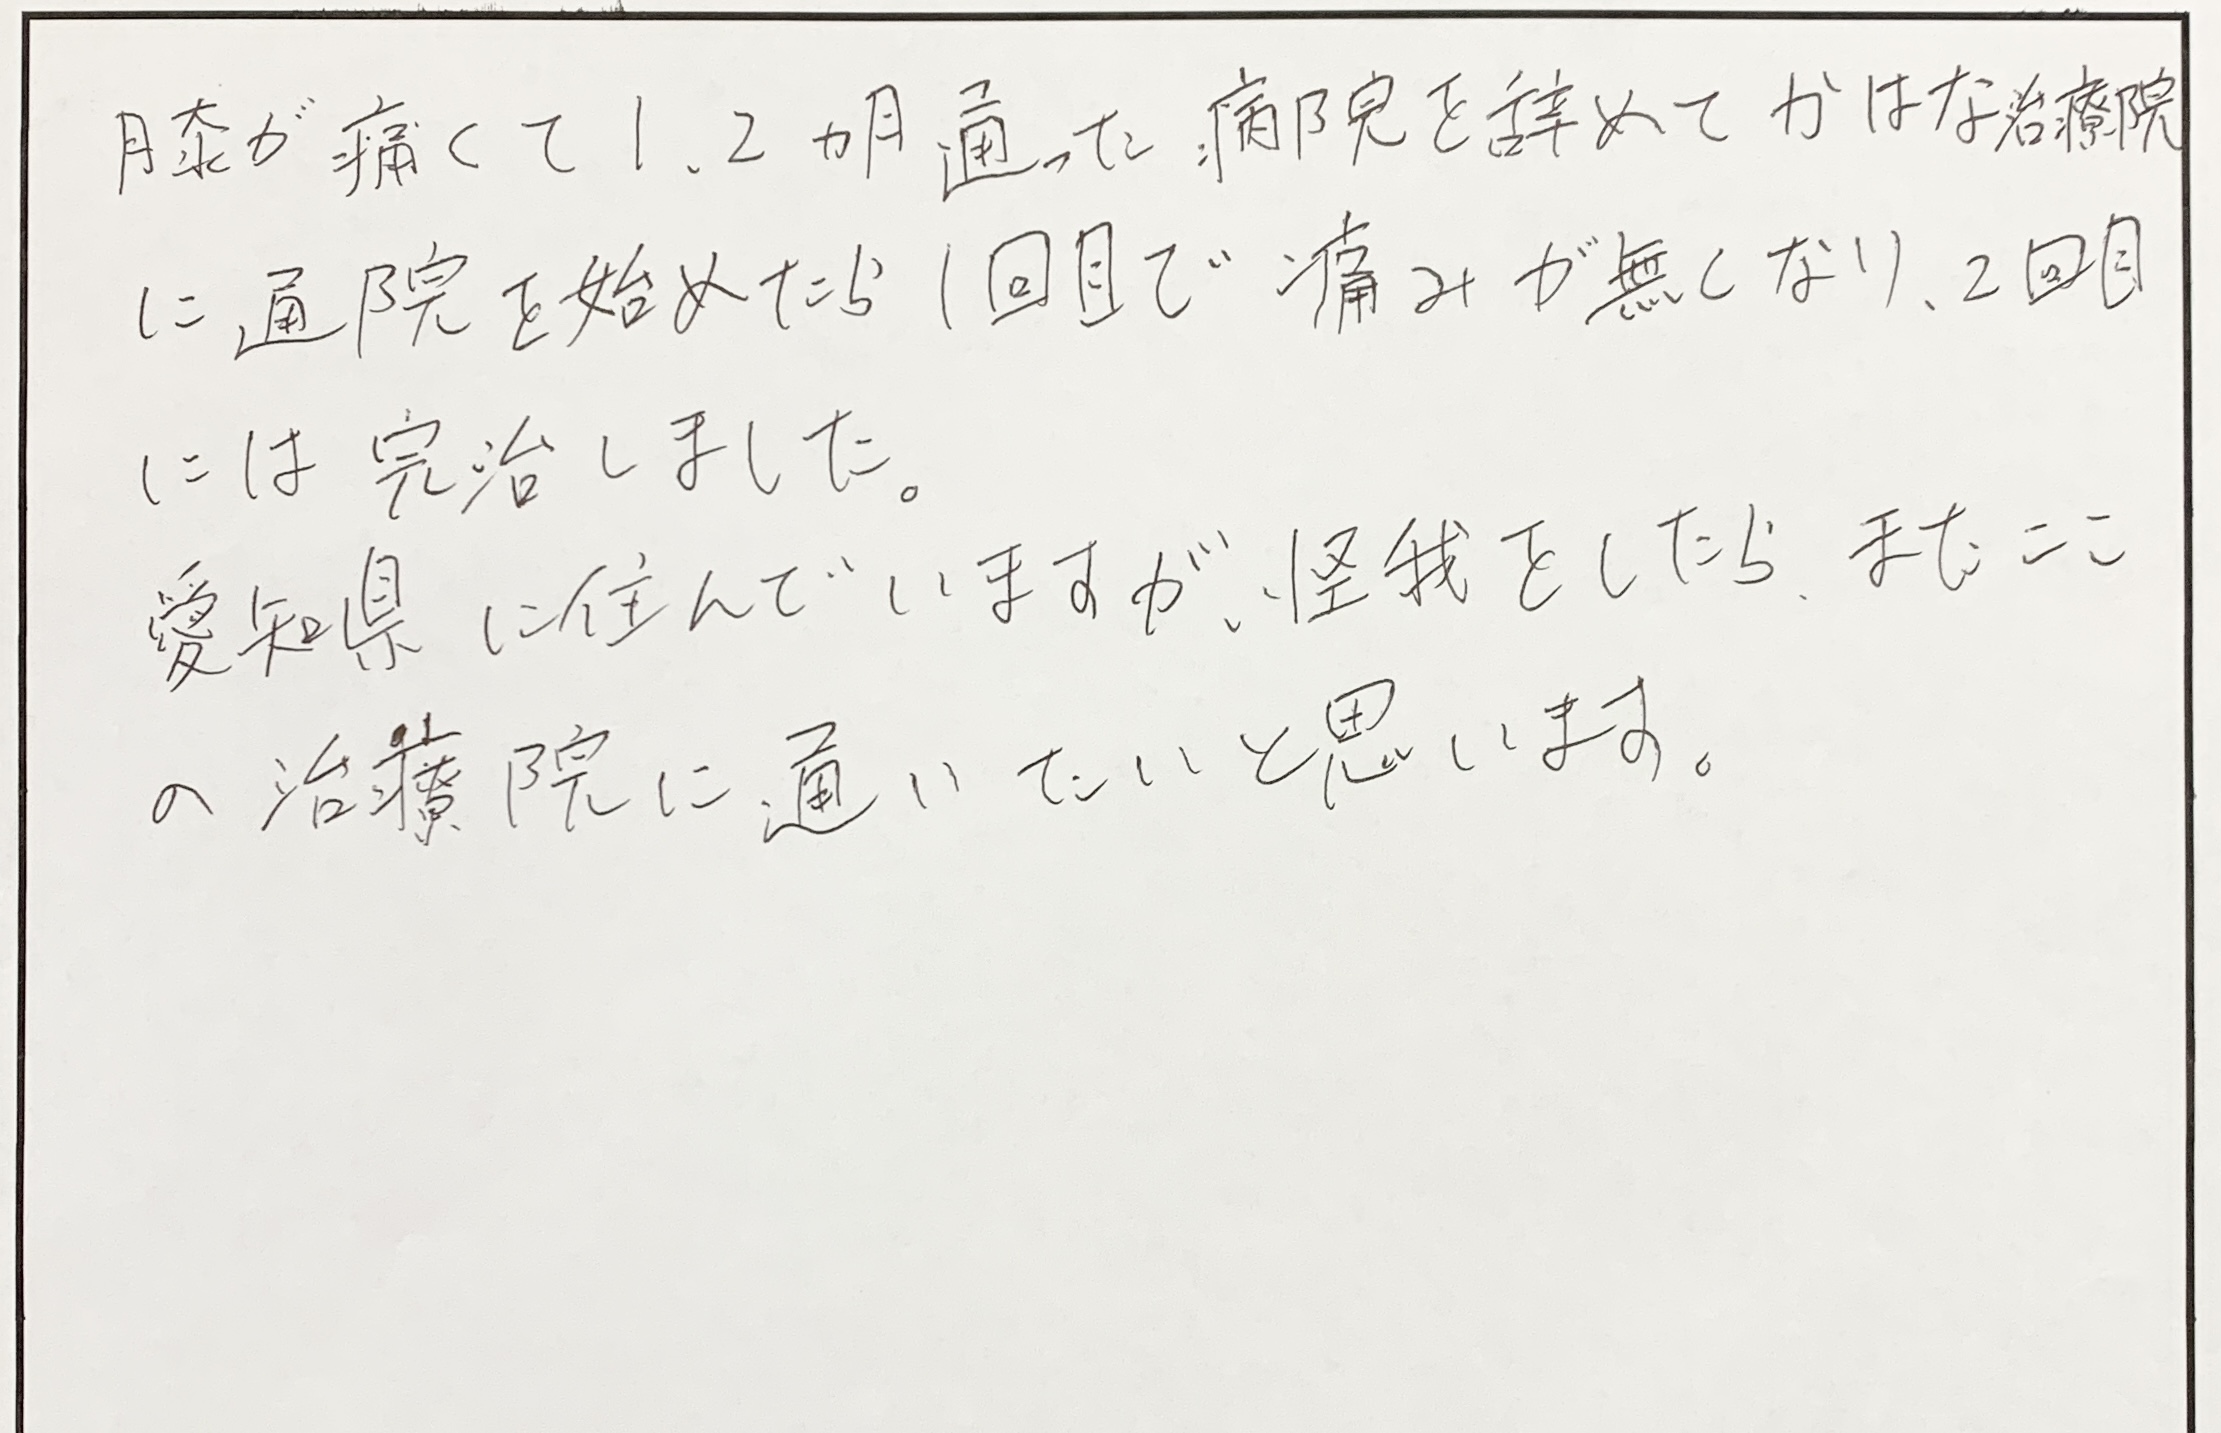 膝が痛くて1、2ヵ月通った病院を辞めてかはな治療院
に通院を始めたら1回目で痛みが無くなり、2回目
には完治しました。
愛知県に住んでいますが、怪我をしたら、またここ
の治療院に通いたいと思います。